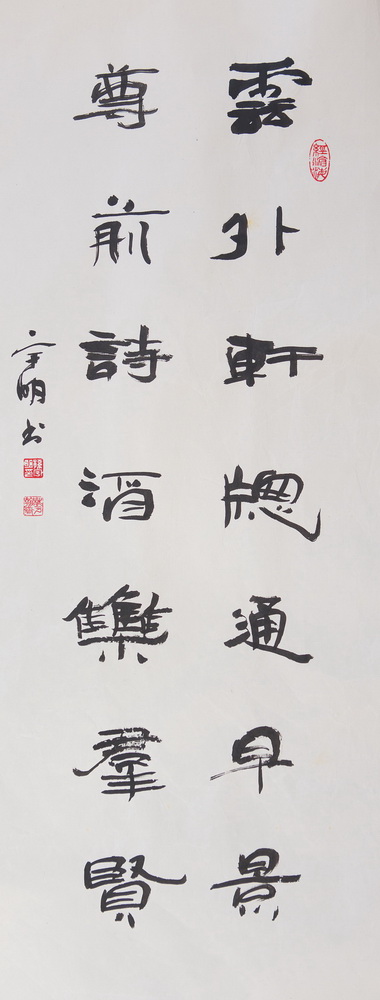 雲外軒牕通早景
尊前詩酒雧羣賢
明书